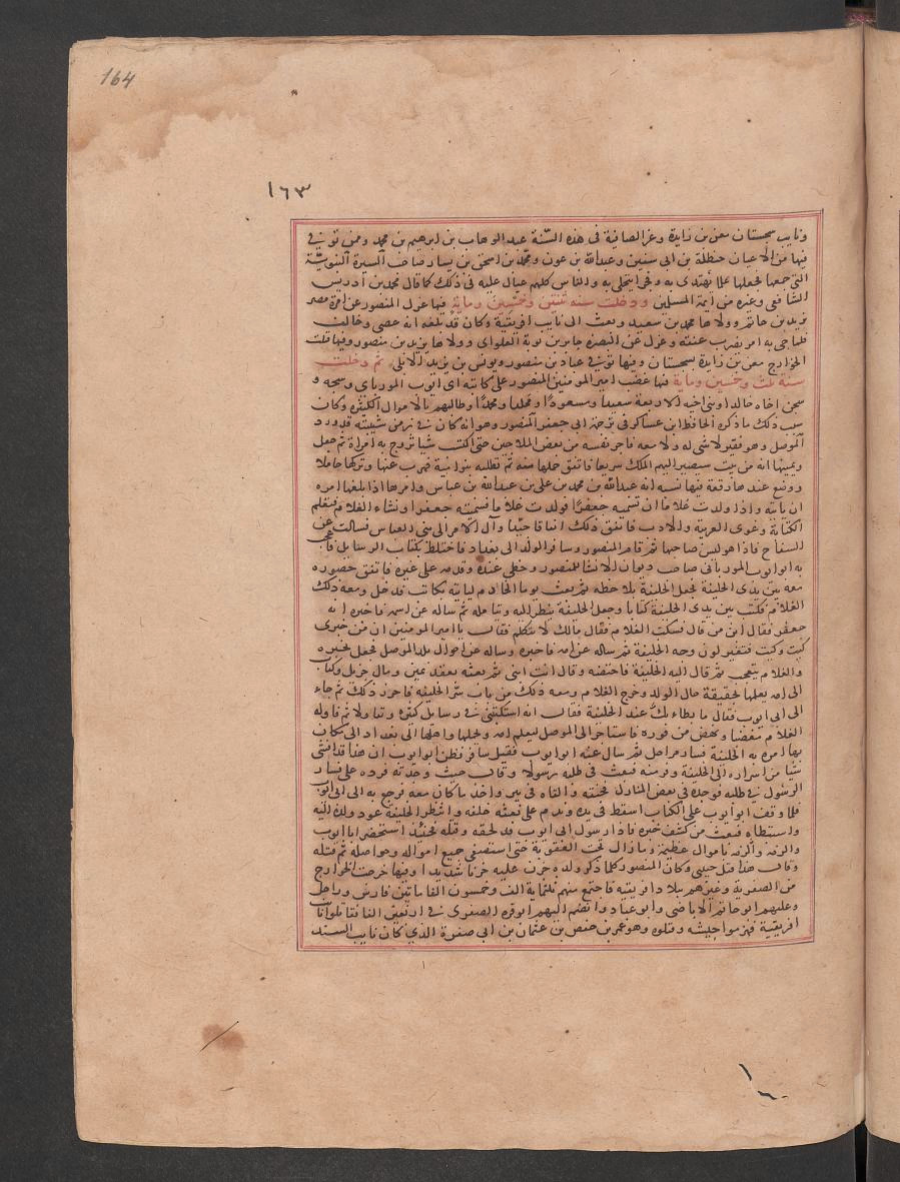 164
١٦٣
ونايب سجستان معن بن زايدة وغزا الصايفة فى هذه السنة عبد الوهاب بن ابرهيم بن محمد وممن توفى
فيها من الاعيان حنظلة بن ابى سفين وعبد الله بن عون ومحمد بن اسحق بن يسار صاحب السيرة النبوية
التى جمعها فجعلها علما يهتدى به وفخرا يتحلى به والناس كلهم عيال عليه فى ذلك كما قال محمد بن ادريس
الشافعى وغيره من ايمة المسلمين ودخلت سنه ثنتين وخمسين وماية فيها عزل المنصور عن امرة مصر
يزيد بن حاتم وولاها محمد بن سعيد وبعث الى نايب افريقية وكان قد بلغه انه عصى وخالف
فلما جى به امر بضرب عنقه وعزل عن البصرة جابر بن توبة وولاها يزيد بن منصور وفيها قتلت
الخوارج معن بن زايدة بسجستان وفيها توفى عباد بن منصور ويونس بن يزيد الايلى ثم دخلت
سنة ثلث وخمسين وماية فيها غضب امير المومنين المنصور على كاتبه ابى ايوب الموريانى وسجنه و
سجن اخاه خالدا وبنى اخيه الاربعة سعيدا ومسعودا ومخلدا ومحمدا وطالبهم بالاموال الكثيرة وكان
سبب ذلك ما ذكره الحافظ ابن عساكر فى ترجمة ابى جعفر المنصور وهو انه كان فى زمن شبيبته قد ورد
الموصل وهو فقير لا شى له ولا معه فاجر نفسه من بعض الملاحين حتى اكتسب شيا تزوج به امراة ثم جعل
يمنيها انه من بيت سيصير اليهم الملك سريعا فاتفق حبلها منه ثم تطلبه بنو امية فهرب عنها وتركها حاملا
ووضع عندها رقعة فيها نسبه انه عبد الله بن محمد بن على بن عبد الله بن عباس وامرها اذا بلغها امره
ان تاتيه واذا ولدت غلاما ان تسميه جعفرا فولدت غلاما فسمته جعفرا ونشاء الغلام فتعلم
الكتابة وغوى العربية والادب فاتفق ذلك اتفاقا جيدا وآل الامر الى بنى العباس فسالت عن
السفاح فاذا هو ليس صاحبها ثم قام المنصور وسافر الولد الى بغداد فاختلط بكتاب الرسايل فاعجب
به ابو ايوب الموريانى صاحب ديوان الانشا للمنصور وحظى عنده وقدمه على غيره فاتفق حضوره
معه بين يدى الخليفة فجعل الخليفة يلاحظه ثم بعث يوما الخادم لياتيه بكاتب فدخل ومعه ذلك
الغلام فكتب بين يدى الخليفة كتابا وجعل الخليفة ينظر اليه ويتامله ثم ساله عن اسمه فاخبره انه
جعفر فقال ابن من قال فسكت الغلام فقال مالك لا تتكلم فقال يا امير المومنين ان من خبرى
كيت وكيت فتغير لون وجه الخليفة ثم ساله عن امه فاخبره وساله عن احوال بلد الموصل فجعل يخبره
والغلام يتعجب ثم قام اليه الخليفة فاحتضنه وقال انت ابنى ثم بعثه بعقد ثمين ومال جزيل وكتاب
الى امه يعلمها بحقيقة حال الولد وخرج الغلام ومعه ذلك من باب سر الخليفة فاحرز ذلك ثم جاء
الى ابى ايوب فقال ما بطاء بك عند الخليفة فقال انه استكتبنى فى رسايل كثيرة وتقاولا ثم فارقه
الغلام مغضبا ونهض من فوره فاستاجر الى الموصل ليعلم امه ويحملها واهلها الى بغداد الى مكان
بها امره به الخليفة فسار مراحل ثم سال عنه ابو ايوب فقيل سافر فظن ابو ايوب ان هذا قد افشى
شيا من اسراره الى الخليفة وفر منه فبعث فى طلبه رسولا وقال حيث وجدته فرده على فسار
الرسول فى طلبه فوجده فى بعض المنازل فخنقه والقاه فى بير واخذ ما كان معه فرجع به الى ابى ايوب
فلما وقف ابو ايوب على الكتاب اسقط فى يده وندم على بعثه خلفه وانتظر الخليفة عود ولده اليه
واستبطاه فبعث من كشف خبره فاذا رسول ابى ايوب قد لحقه وقتله فحينئذ استحضر ابا ايوب
والزمه باموال عظيمة وما زال تحت العقوبة حتى استصفى جميع امواله وحواصله ثم قتله
وقال هذا قتل حبيبى وكان المنصور كلما ذكر ولده حزن عليه حزنا شديدا وفيها خرجت الخوارج
من الصفرية وغيرهم ببلاد افريقية فاجتمع منهم ثلثماية الف وخمسون الفا ما بين فارس وراجل
وعليهم ابو حاتم الاباضى وابو عباد وانضم اليهم ابو قرة الصفرى فى اربعين الفا فقاتلوا نايب
افريقية فهزموا جيشه وقتلوه وهو عمر بن حفص بن عثمان بن ابى صفرة الذي كان نايب السند